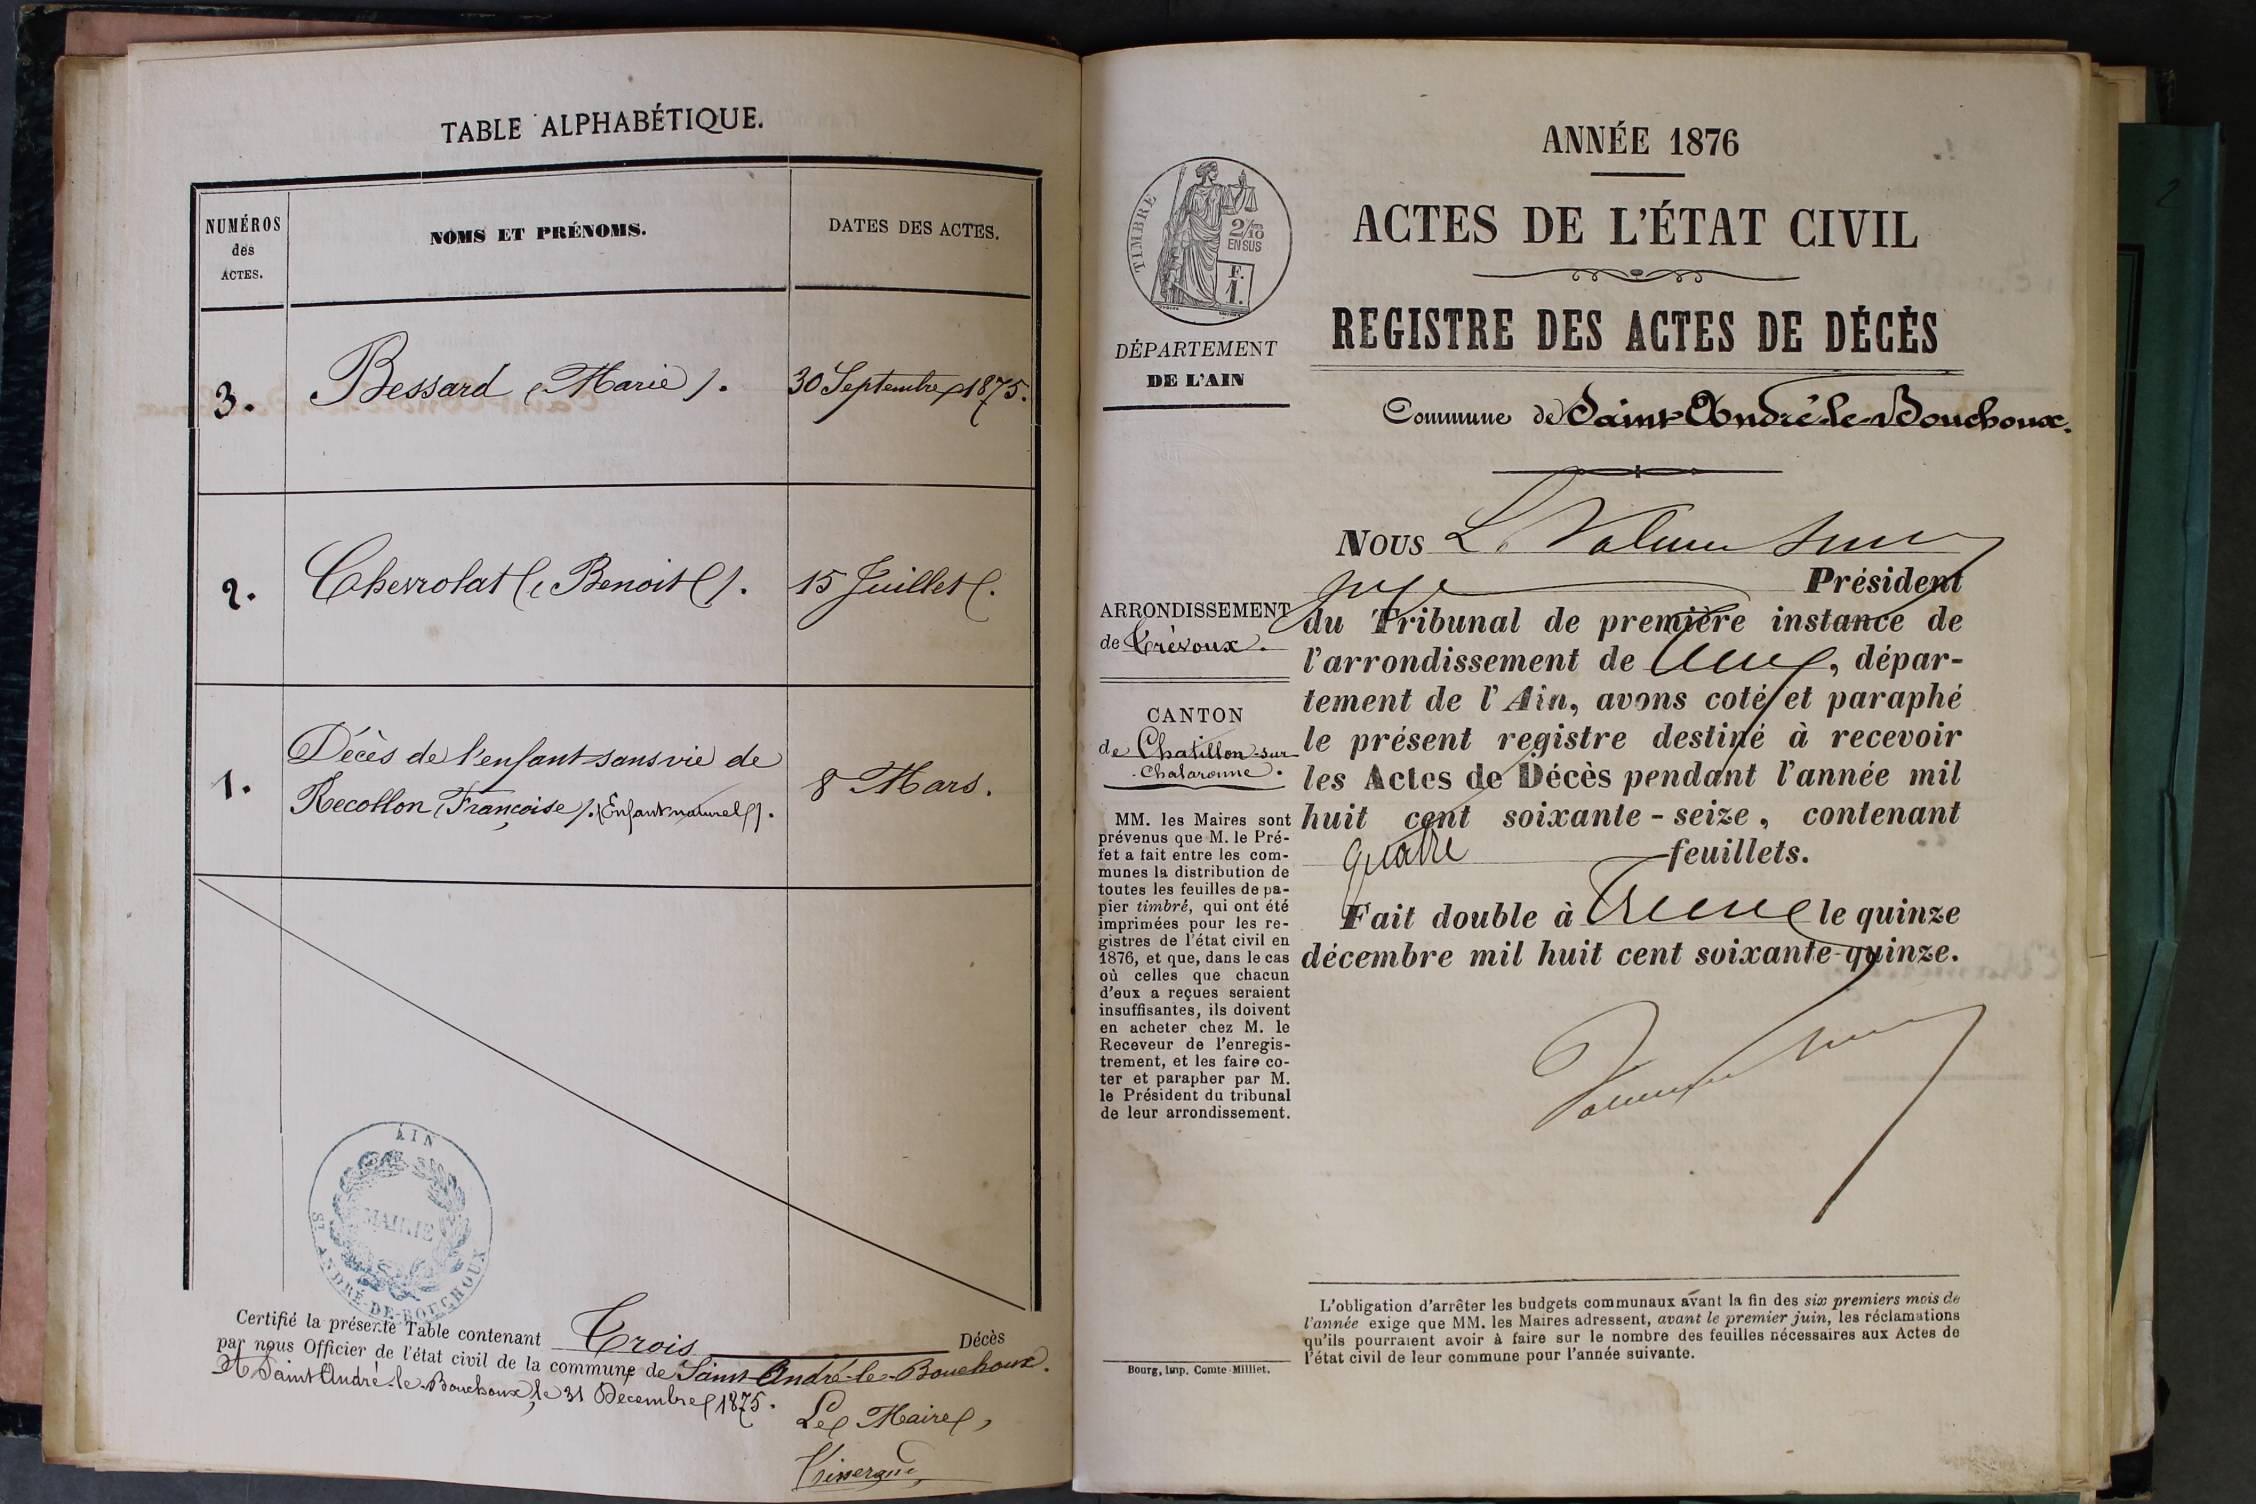 TABLE ALPHABÉTIQUE.
NUMÉROS
des
ACTES.
NOMS ET PRÉNOMS.
DATES DES ACTES.
3. Bessard (Marie). 30 Septembre 1875.
2. Chevrolat (Benoit). 15 Juillet.
Décès de l'enfant sans vie de
1. Recollon (Françoise). (Enfant naturel). 8 Mars.
AIN
MAIRIE
ST ANDRÉ-DE-BOUCHOUX
Certifié la présente Table contenant Trois Décès
par nous Officier de l'état civil de la commune de Saint-André-le-Bouchoux.
A Saint André-le-Bouchoux, le 31 Décembre 1875.
Le Maire,
ANNÉE 1876
ACTES DE L'ÉTAT CIVIL
REGISTRE DES ACTES DE DÉCÈS
Commune de Saint-André-le-Bouchoux.
TIMBRE
2/10
EN SUS
F.
1.
DÉPARTEMENT
DE L'AIN
ARRONDISSEMENT
de Trévoux.
CANTON
de Chatillon-sur
-Chalaronne.
MM. les Maires sont
prévenus que M. le Pré-
fet a fait entre les com-
munes la distribution de
toutes les feuilles de pa-
pier timbré, qui ont été
imprimées pour les re-
gistres de l'état civil en
1876, et que, dans le cas
où celles que chacun
d'eux a reçues seraient
insuffisantes, ils doivent
en acheter chez M. le
Receveur de l'enregis-
trement, et les faire co-
ter et parapher par M.
le Président du tribunal
de leur arrondissement.
Bourg, imp. Comte-Milliet.
NOUS L.
juge Président
du Tribunal de première instance de
l'arrondissement de , dépar-
tement de l'Ain, avons coté et paraphé
le présent registre destiné à recevoir
les Actes de Décès pendant l'année mil
huit cent soixante-seize, contenant
quatre feuillets.
Fait double à le quinze
décembre mil huit cent soixante-quinze.
L'obligation d'arrêter les budgets communaux avant la fin des six premiers mois de
l'année exige que MM. les Maires adressent, avant le premier juin, les réclamations
qu'ils pourraient avoir à faire sur le nombre des feuilles nécessaires aux Actes de
l'état civil de leur commune pour l'année suivante.